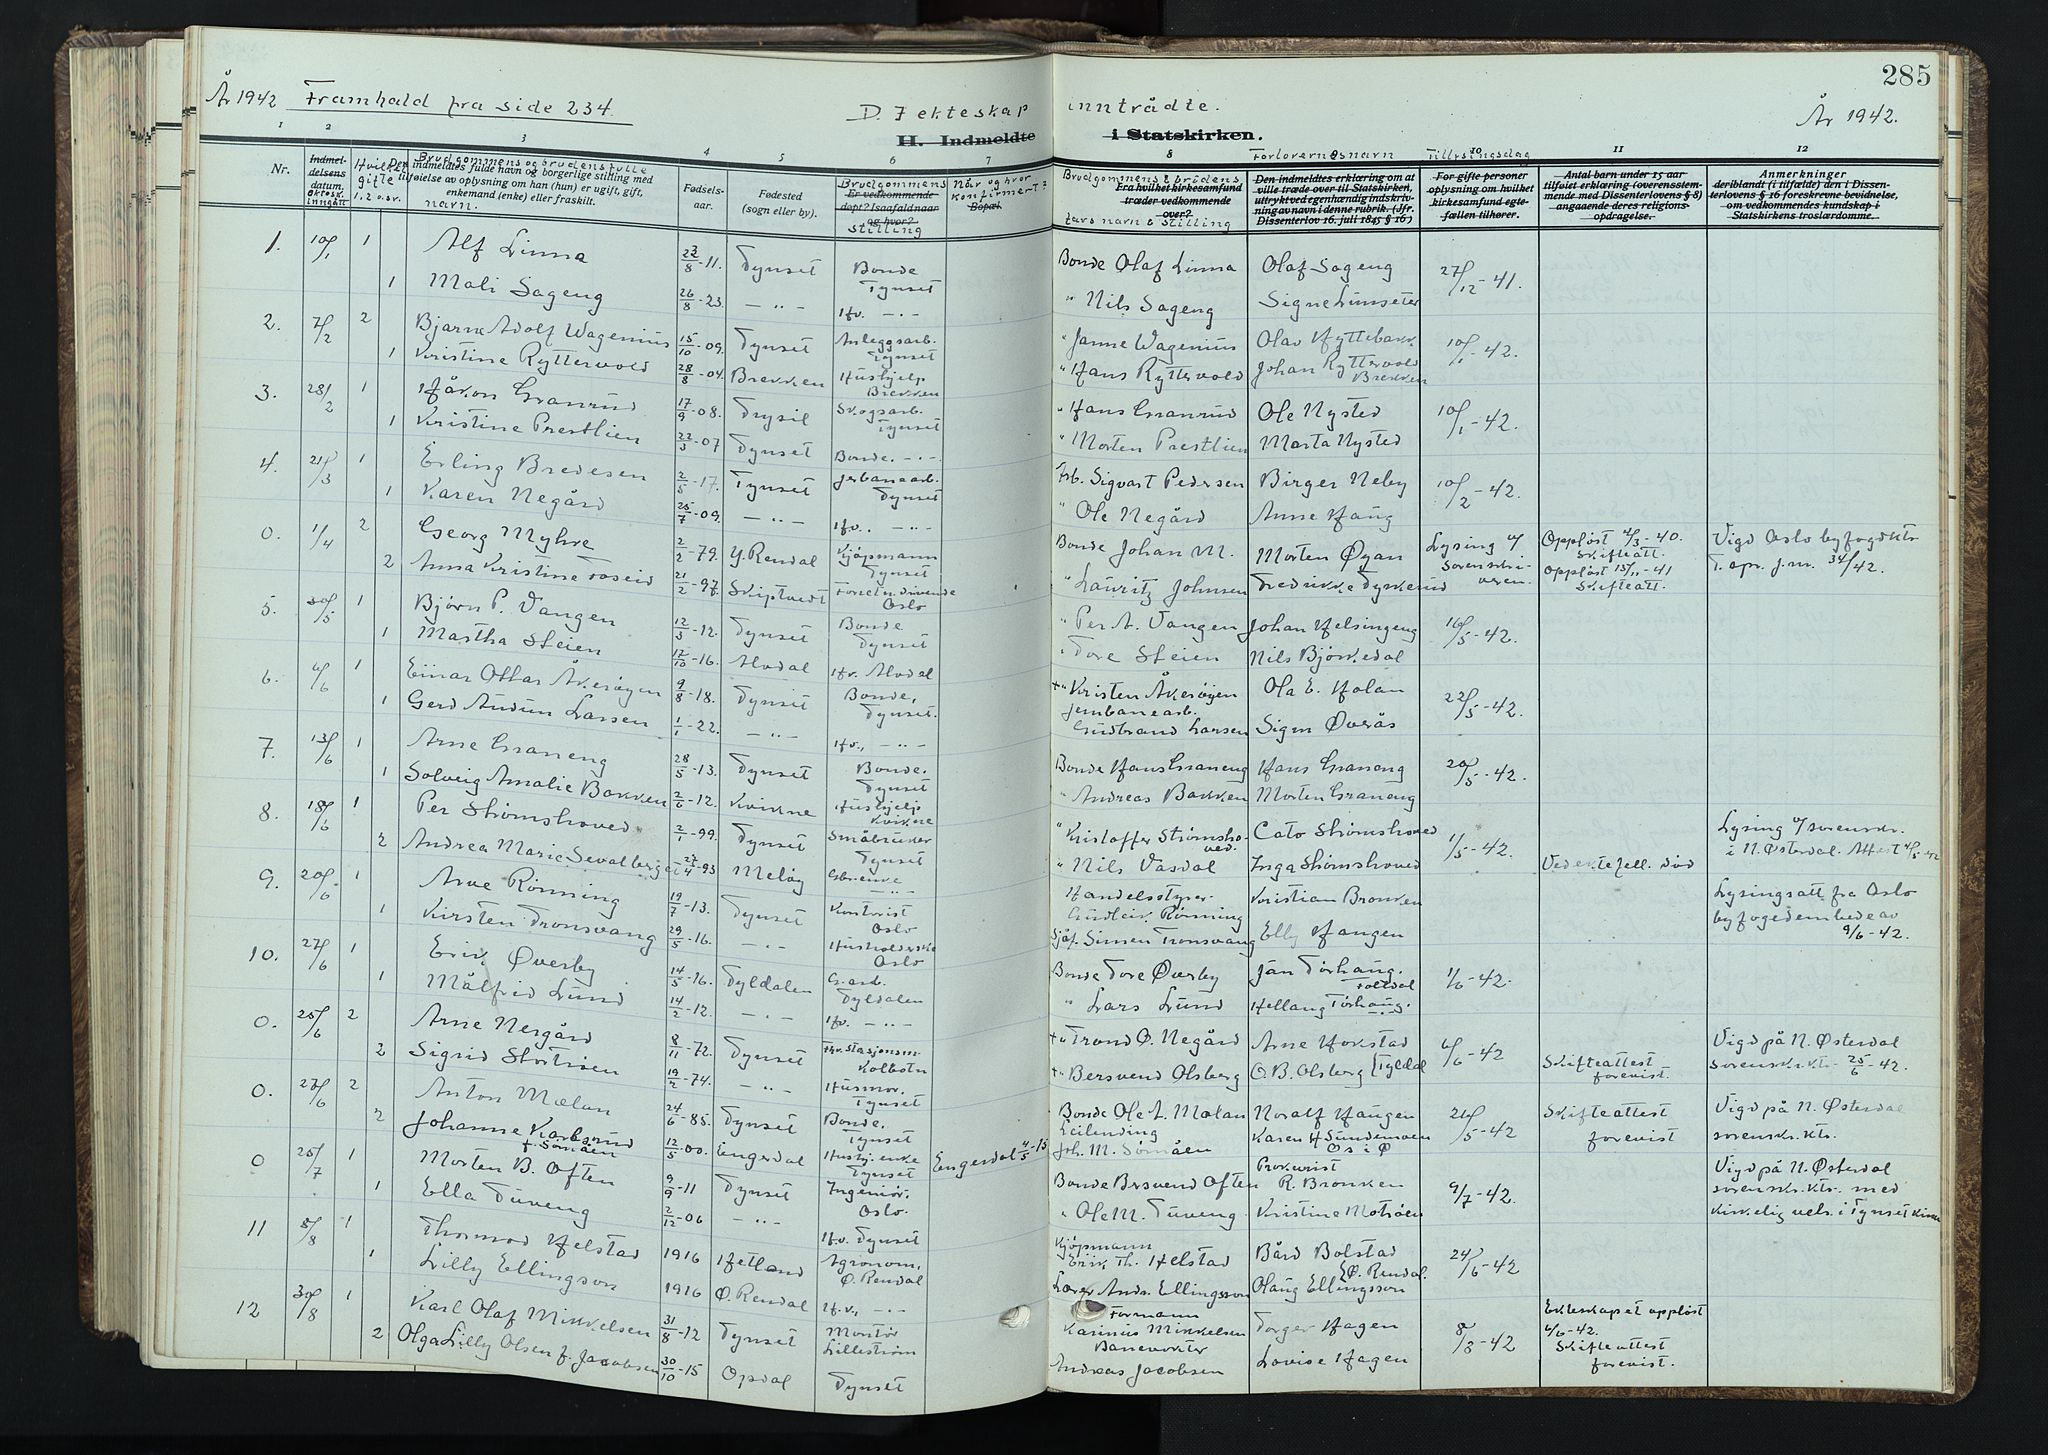 285
År 1942 Framhald fra side 234. D. I ekteskap inntrådte. År 1942.
H. Indmeldte i Statskirken.
1 2 3 4 5 6 7 8 10 11 12
Nr.
Indmeldelsens datum.
Brudgommens og brudens fulle navn.
Den indmeldtes fulde navn og borgerlige stilling med tilføielse av oplysning om han (hun) er ugift, gift, enkemand (enke) eller fraskilt.
Fødselsaar.
Fødested (sogn eller by).
Brudgommens stilling
Er vedkommende døpt? I saafald naar og hvor?
Når og hvor konfirmert?
Bopæl.
Brudgommens & brudens fars navn & stilling
Fra hvilket kirkesamfund træder vedkommende over?
Forlovernes navn
Den indmeldtes erklæring om at ville træde over til Statskirken, uttrykt ved egenhændig indskrivning av navn i denne rubrik. (Jfr. Dissenterlov 16. juli 1845 § 16)
Lysingsdag
For gifte personer oplysning om hvilket kirkesamfund egtefællen tilhører.
Antal barn under 15 aar tilføiet erklæring (overensstemmende med Dissenterlovens § 8) angaaende deres religionsopdragelse.
Anmerkninger
deriblandt (i tilfælde) den i Dissenterlovens § 16 foreskrevne bevidnelse, om vedkommendes kundskap i Statskirkens troslærdomme.
1. 10/1 1 Alf Linna 22/8-11. Tynset Bonde Tynset Bonde Olaf Linna Olaf Sageng 27/12-41.
1 Mali Sageng 26/8-23. -"- Hv. -"- " Nils Sageng Signe Limseter
2. 7/2 2 Bjarne Adolf Wagenius 15/10-09. Tynset Anleggsarb. Tynset " Janne Wagenius Olav Hyttebakk 10/1-42.
1 Kristine Ryttervold 28/8-04. Brekken Hushjelp Brekken " Hans Ryttervold Johan Ryttervold Brekken
3. 28/2 1 Håkon Granrud 17/9-08. Trysil Skogsarb. Tynset " Hans Granrud Ole Nysted 10/1-42.
1 Kristine Prestlien 22/3-07 Tynset Bonde. -"- " Morten Prestlien Marta Nysted
4. 21/3 1 Erling Bredesen 2/5-17. Tynset Jernbanearb. Tynset Arb. Sigvart Pedersen Birger Neby 10/2-42.
1 Karen Negård 25/7-09. -"- Hv. -"- " Ole Negård Anne Haug
0. 1/4 2 Georg Myhre 2/2-79. Y. Rendal Kjøpmann Tynset Bonde Johan M. Morten Øyan Lysing v/ Sorenskriveren. Oppløst 4/3-40. Skifteatt. Vigd Oslo byfogdktr
2 Anna Kristine Foseid 21/2-97. Skiptvedt Oslo " Lauritz Johnsen Fredrikke Dyrkerud Oppløst 15/11-41 Skifteatt. 34/42.
5. 30/5 1 Bjørn P. Vangen 12/3-12. Tynset Bonde Tynset " Per A. Vangen Johan Helsingeng 16/5-42.
1 Martha Steien 17/10-16. Alvdal Hv. Alvdal " Tore Steien Nils Bjørkedal
6. 4/6 1 Einar Ottar Åkerøyen 9/8-18. Tynset Bonde, Tynset. +" Kristen Åkerøyen Ola E. Holan 22/5-42.
1 Gerd Audun Larsen 1/1-22. -"- Hv., -"- Jernbanearb. Gudbrand Larsen Sign Øverås
7. 13/6 1 Arne Graneng 28/5-13. Tynset Bonde. Tynset Bonde Hans Graneng Hans Graneng 20/5-42.
1 Solveig Amalie Bakken 2/6-12. Kvikne Hushjelp Kvikne " Andreas Bakken Morten Graneng
8. 18/6 1 Per Strømshoved 2/1-99. Tynset Småbruker Tynset " Kristoffer Strømshoved. Cato Strømshoved 1/5-42. Lysing v/ sorenskr. i N. Østerdal. Attest 4/5-42
2 Andrea Marie Sevalberget 27/4-93 Meløy Gbr.enke -"- " Nils Våsdal Inga Strømshoved Ved ektefell. død
9. 20/6 1 Arve Rønning 19/7-13. Tynset Kontorist Oslo Handelsstyrer Gudleik Rønning Kristian Bronken Lysingsatt fra Oslo byfogedembede av 9/6-42.
1 Kirsten Tronsvang 29/5-16. -"- Husholderske Oslo Sjåf. Simen Tronsvang Elly Haugen
10. 27/6 1 Erik Øverby 14/5-16. Tyldalen G.arb. Tyldalen Bonde Tore Øverby Jan Tørhaug. Folldal 1/6-42.
1 Målfrid Lund 14/2-12. -"- Hv. -"- " Lars Lund Hellaug Tørhaug. -"-
0. 25/6 2 Arne Nergård 8/11-72. Tynset Fhv. Stasjonsm. Kolbotn +" Trond O. Negård Arne Horstad 6/6-42 Vigd på N. Østerdal
2 Sigrid Stortrøen 19/2-74. -"- Husmor. Tynset +" Bersvend Olsberg O. B. Olsberg Tyldal Skifteattest forevist. sorenskr.ktr- 25/6-42.
0. 27/6 2 Anton Mælan 24/6-85. Tynset Bonde. Tynset Bonde Ole A. Mælan Noralf Haugen 26/5-42 Skifteattest forevist Vigd på N. Østerdal sorenskr.ktr.
2 Johanne Karlsrud f. Sømåen 12/5-00. Engerdal Husbj. enke Tynset Engerdal 4/5-15 Leilending Joh. M. Sømåen Karen H Sundemoen Os i Ø
0 25/7 1 Morten B. Often 9/9-11 Tynset Ingeniør. Oslo. Bonde Bersvend Often Prokurist R. Bronken 9/7-42. Vigd på N. Østerdal sorenskr.ktr. med
1 Ella Tuveng 2/12-06 -"- Hv. Tynset " Ole M. Tuveng Kristine Motrøen kirkelig vels. i Tynset kirke
11 8/8 1 Thormod Helstad 1916 Hetland Agronom. Ø. Rendal Kjøpmann Erik Th. Helstad Bård Bolstad Ø. Rendal. 24/6-42
1 Lilly Ellingson 1916 Ø. Rendal Hv., -"- Lærer Andr. Ellingsson Olaug Ellingsson
12 30/8 1 Karl Olaf Mikkelsen 31/8-12 Tynset Montør Lillestrøm Formann Karinius Mikkelsen Torger Hagen 8/8-42 Ekteskapet oppløst 6/6-42. Skifteattest forevist.
2 Olga Lilly Olsen f. Jacobsen 30/10-15 Opdal Tynset Banevokter Andreas Jacobsen Lovise Hagen